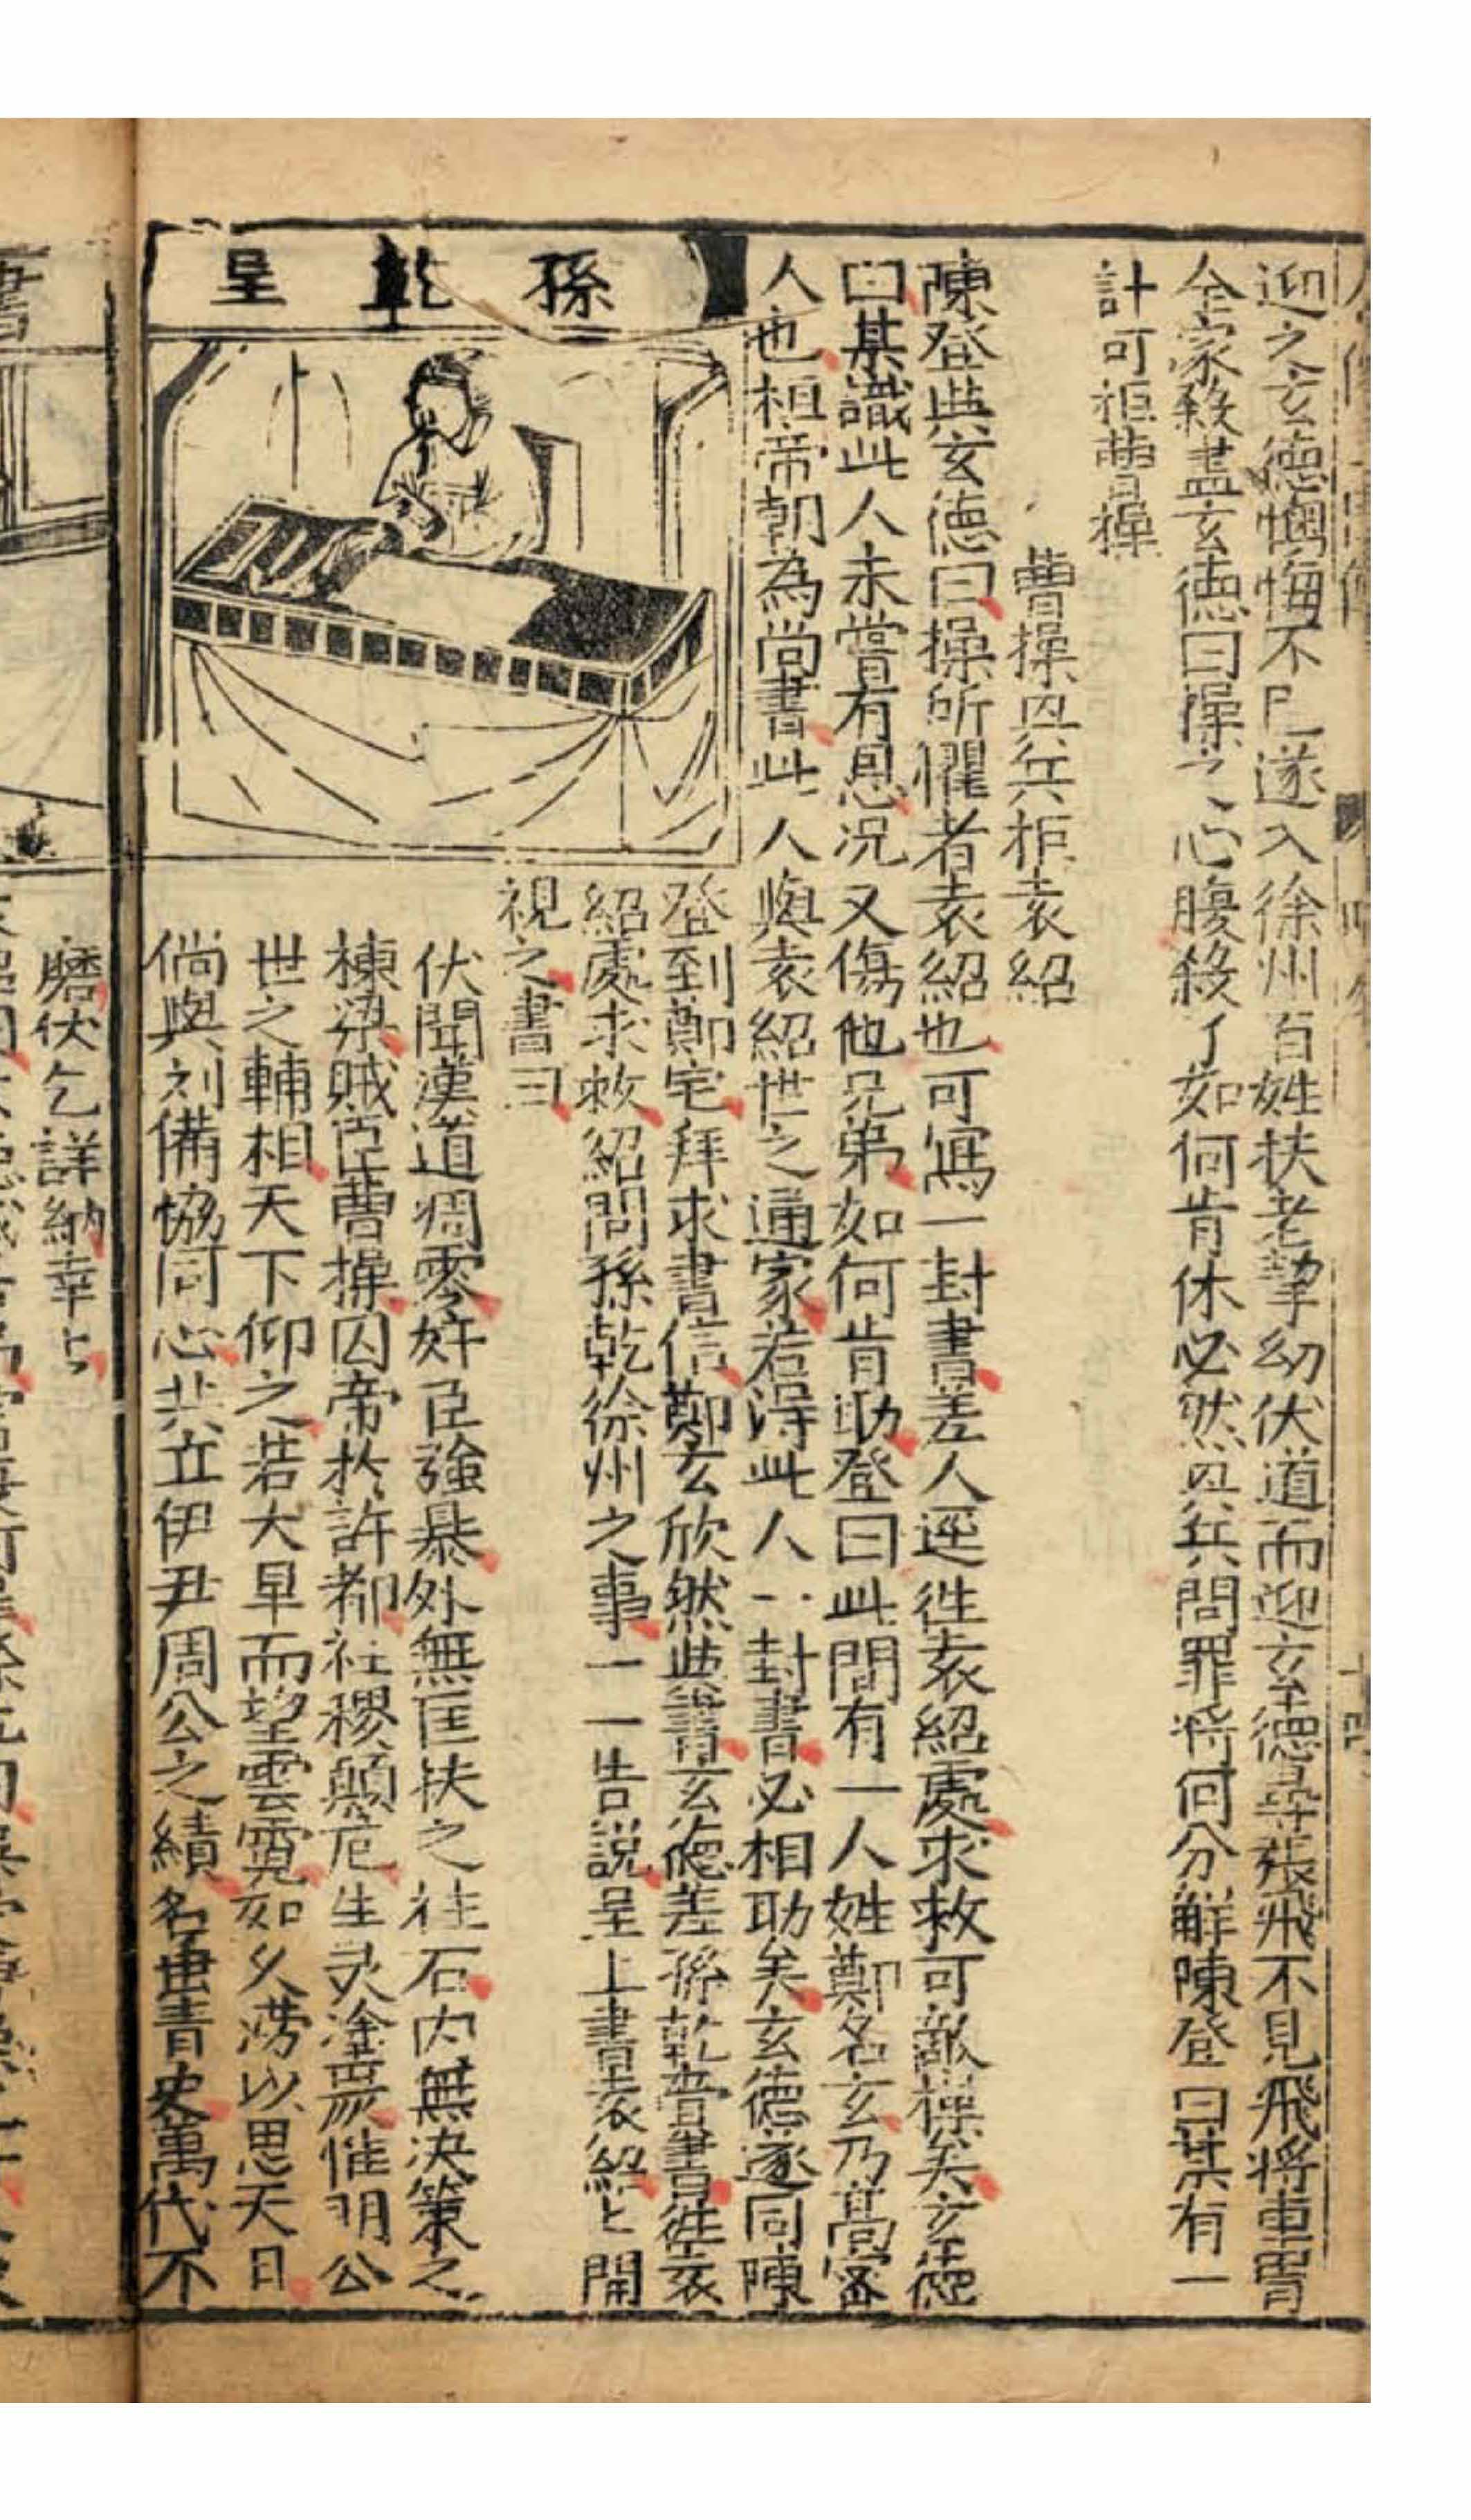 迎之玄德懊悔不已遂入徐州百姓扶老挈幼伏道而迎玄德尋張飛不見飛將車胄
全家殺盡玄德曰操之心腹殺了如何肯休必然興兵問罪將何分觧陳登曰某有一
計可拒曹操
曹操興兵拒袁紹
陳登與玄德曰操所懼者袁紹也可寫一封書差人逕徃袁紹處求救可敵操矣玄德
曰某識此人未嘗有恩况又傷他兄弟如何肯助登曰此間有一人姓鄭名玄乃髙密
人也桓帝朝為尚書此人與袁紹世之通家若得此人一封書必相助矣玄德遂同陳
登到鄭宅拜求書信鄭玄欣然與書玄德差孫乾賫書徃袁
紹處求救紹問孫乾徐州之事一一告説呈上書袁紹匕開
視之書曰
伏聞漢道凋零奸臣強暴外無匡扶之柱石内無决策之
棟梁賊臣曹操囚帝於許都社稷顛危生灵塗炭惟明公
世之輔相天下仰之若大旱而望雲霓如久澇以思天日
倘與刘備協同心共立伊尹周公之績名垂青史萬代不
孫乾呈
書
伏乞詳納幸匕